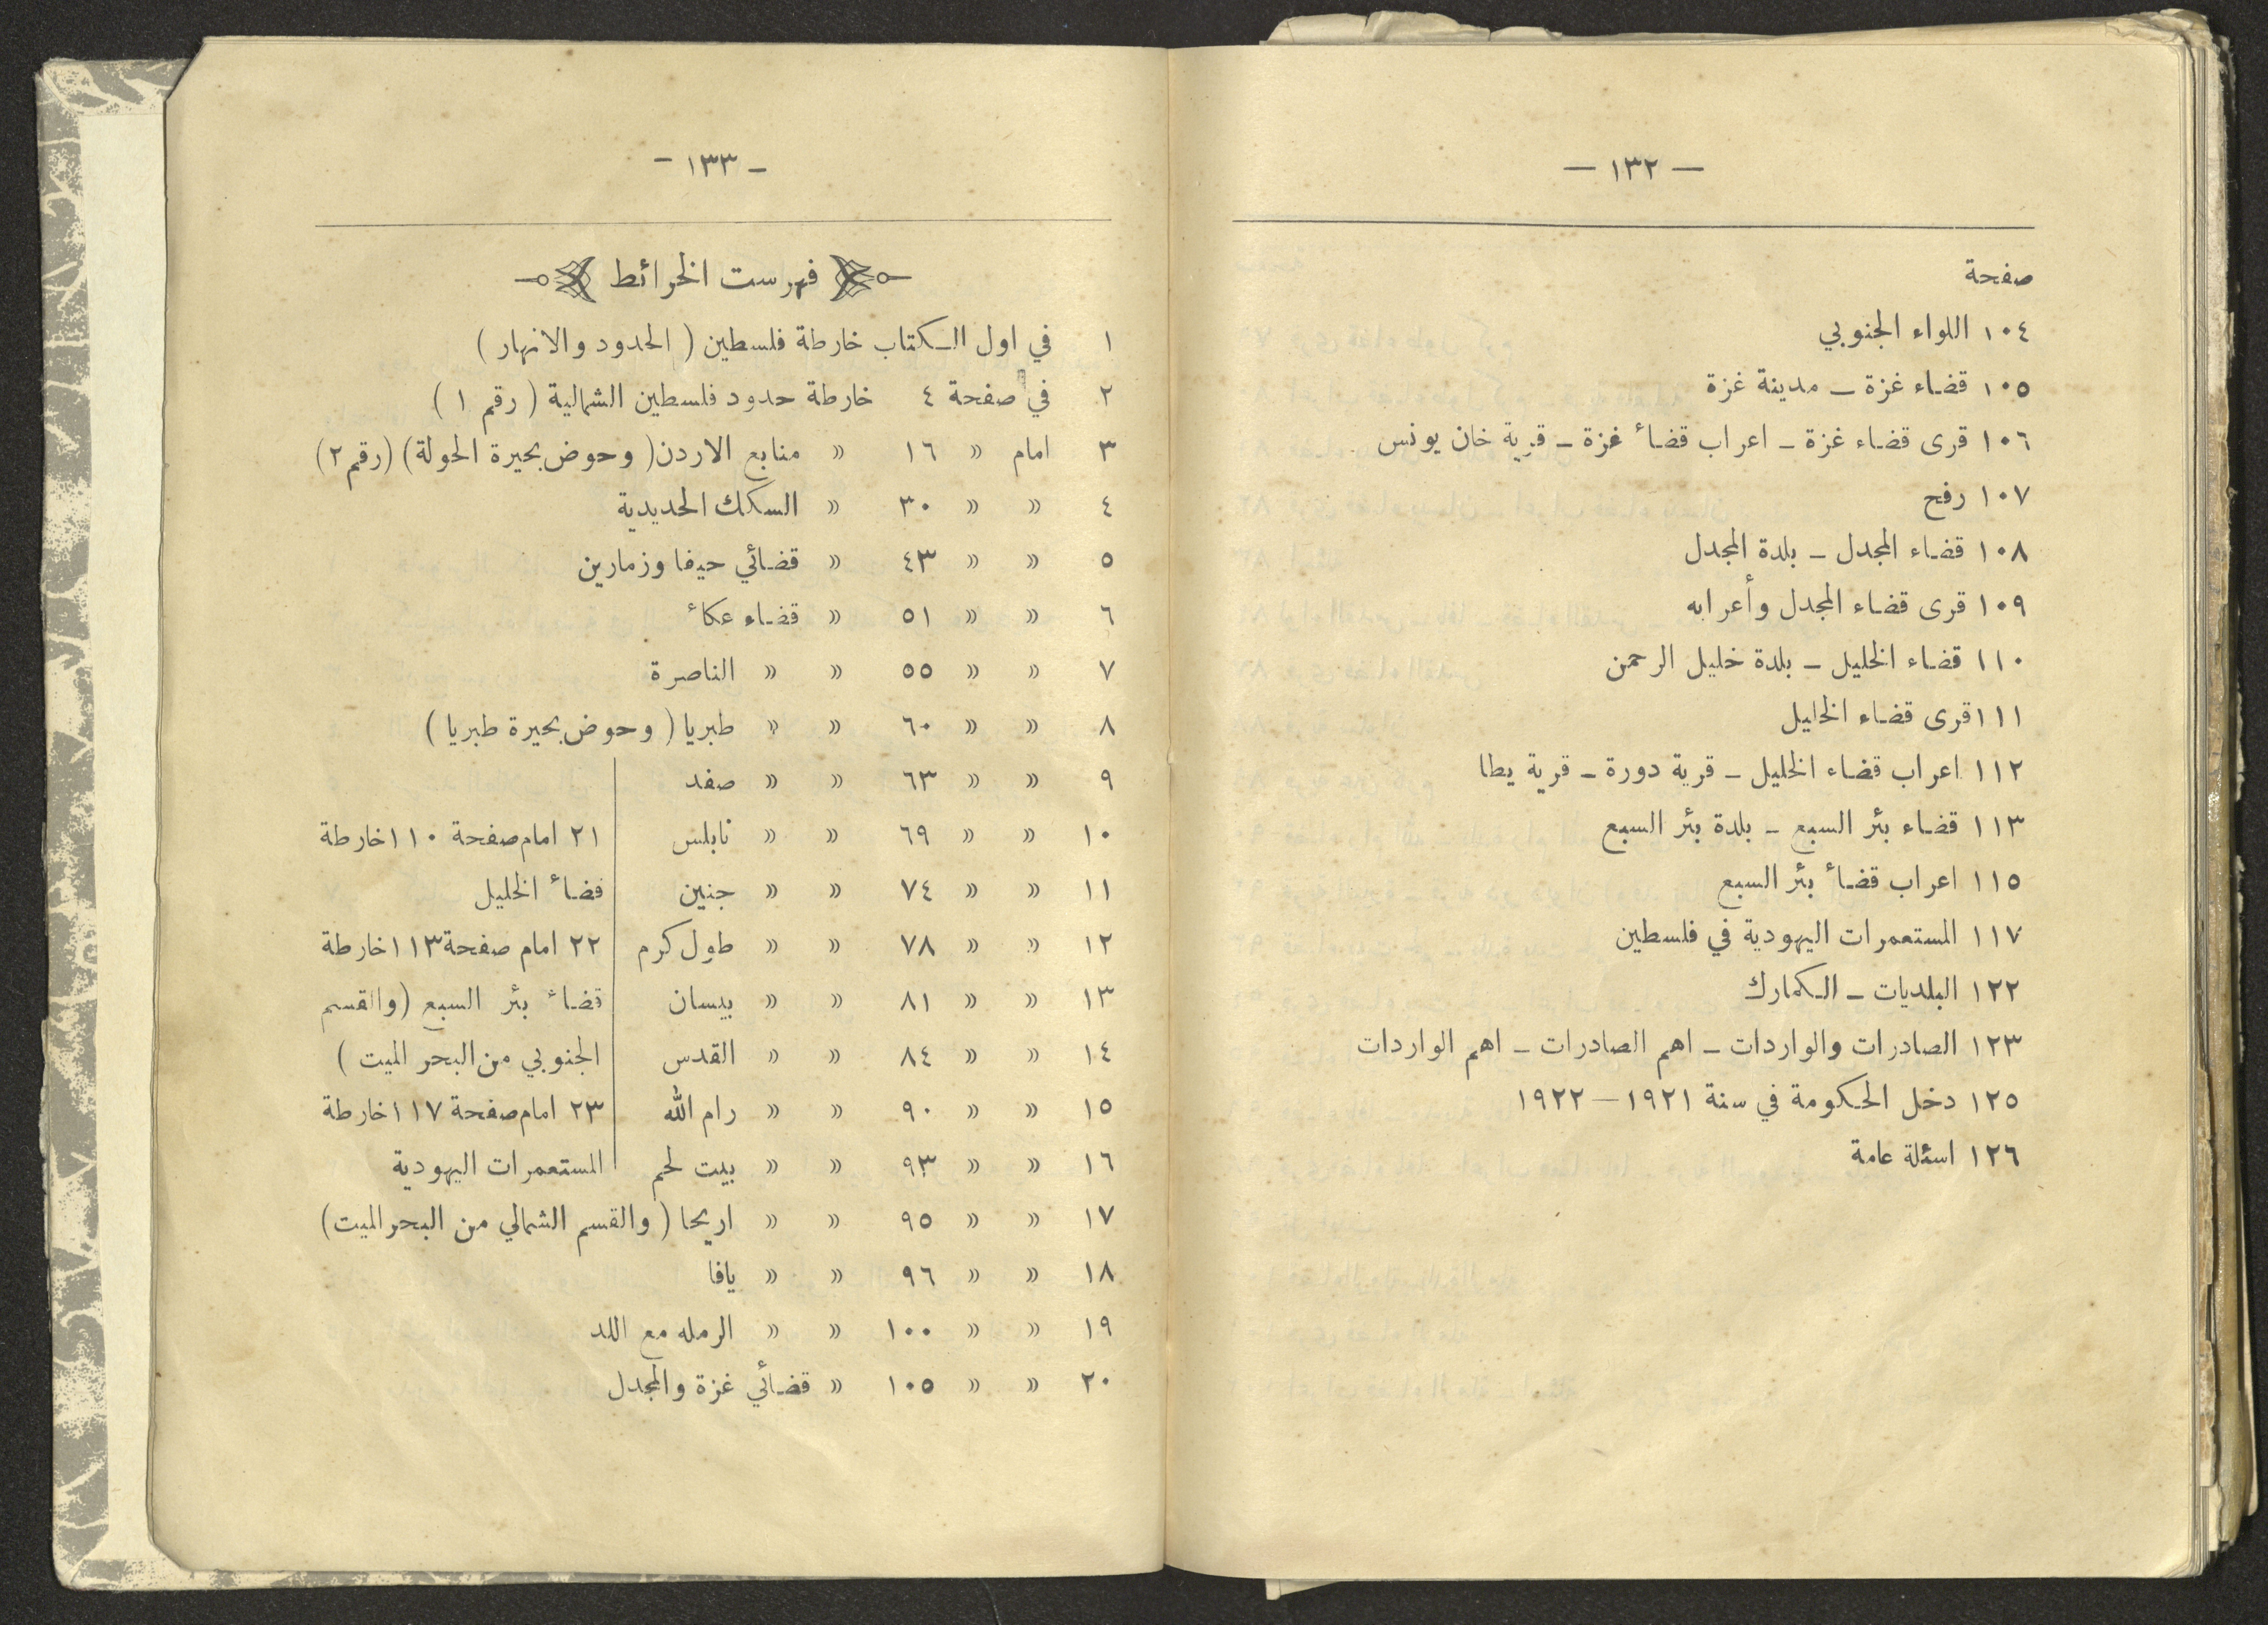 — ١٣٢ —
صفحة
١٠٤ اللواء الجنوبي
١٠٥ قضاء غزة – مدينة غزة
١٠٦ قرى قضاء غزة – اعراب قضاء غزة – قرية خان يونس
١٠٧ رفح
١٠٨ قضاء المجدل – بلدة المجدل
١٠٩ قرى قضاء المجدل وأعرابه
١١٠ قضاء الخليل – بلدة خليل الرحمن
١١١ قرى قضاء الخليل
١١٢ اعراب قضاء الخليل – قرية دورة – قرية يطا
١١٣ قضاء بئر السبع – بلدة بئر السبع
١١٥ اعراب قضاء بئر السبع
١١٧ المستعمرات اليهودية في فلسطين
١٢٢ البلديات – الكمارك
١٢٣ الصادرات والواردات – اهم الصادرات – اهم الواردات
١٢٥ دخل الحكومة في سنة ١٩٢١ — ١٩٢٢
١٢٦ اسئلة عامة
– ١٣٣ –
فهرست الخرائط
١ في اول الكتاب خارطة فلسطين ( الحدود والانهار )
٢ في صفحة ٤ خارطة حدود فلسطين الشمالية ( رقم ١ )
٣ امام » ١٦ » منابع الاردن ( وحوض بحيرة الحولة ) (رقم ٢)
٤ » » ٣٠ » السكك الحديدية
٥ » » ٤٣ » قضائي حيفا وزمارين
٦ » » ٥١ » قضاء عكاء
٧ » » ٥٥ » » الناصرة
٨ » » ٦٠ » » طبريا ( وحوض بحيرة طبريا )
٩ » » ٦٣ » » صفد
١٠ » » ٦٩ » » نابلس
١١ » » ٧٤ » » جنين
١٢ » » ٧٨ » » طول كرم
١٣ » » ٨١ » » بيسان
١٤ » » ٨٤ » » القدس
١٥ » » ٩٠ » » رام الله
١٦ » » ٩٣ » » بيت لحم
١٧ » » ٩٥ » » اريحا ( والقسم الشمالي من البحر الميت )
١٨ » » ٩٦ » » يافا
١٩ » » ١٠٠ » » الرمله مع اللد
٢٠ » » ١٠٥ » قضائي غزة والمجدل
٢١ امام صفحة ١١٠ خارطة
قضاء الخليل
٢٢ امام صفحة ١١٣ خارطة
قضاء بئر السبع (والقسم
الجنوبي من البحر الميت )
٢٣ امام صفحة ١١٧ خارطة
المستعمرات اليهودية